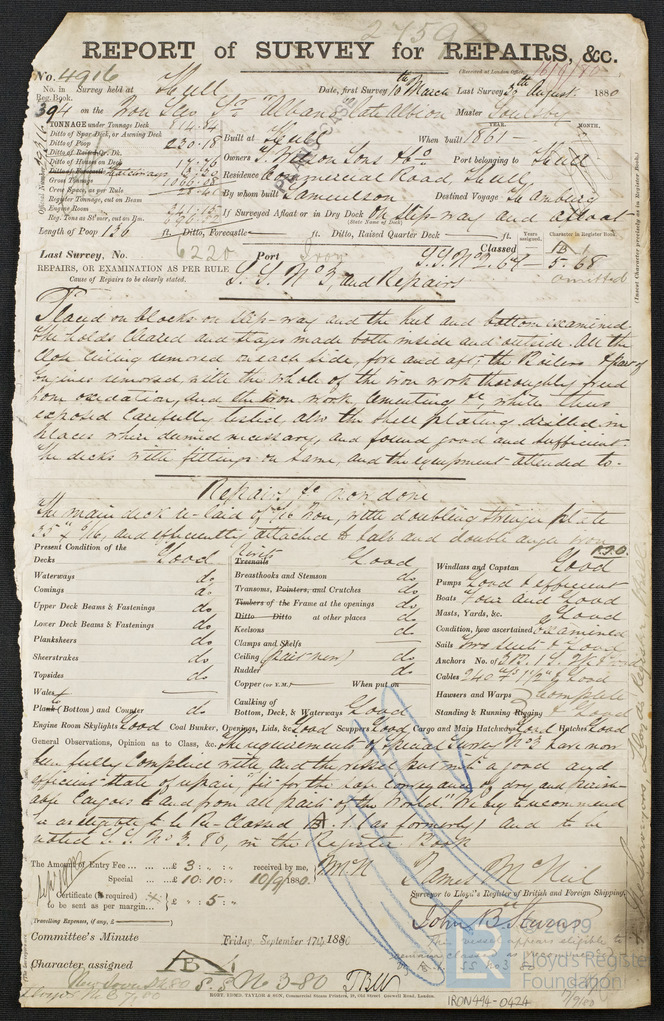 27592
REPORT of SURVEY for REPAIRS, &c.
(Received at London Office
No. 4916
No. in Reg. Book. Survey held at Hull Date, first Survey 10th March Last Survey August 1880
394 on the Iron Scr Str "Albano" late Albion Master Soulsby
TONNAGE under Tonnage Deck 814.84
Ditto of Spar Deck, or Awning Deck
Ditto of Poop 230.18
Ditto of Raised Qr. Dk.
Ditto of Houses on Deck
Ditto of Forecastle Hatchways
Gross Tonnage
Crew Space, as per Rule
Register Tonnage, cut on Beam
Engine Room
Reg. Tons as St'mer, cut on Bm.
Built at Hull When built 1861 YEAR. MONTH.
Owners T. Wilson Sons & Co Port belonging to Hull
Residence Commercial Road, Hull
By whom built Samuelson Destined Voyage Hamburg
If Surveyed Afloat or in Dry Dock On slip-way and afloat
(State Name of Dock)
Length of Poop 136 ft. Ditto, Forecastle ft. Ditto, Raised Quarter Deck ft. Years assigned. Character in Register Book
Classed
Last Survey, No. 6220 Port
S.S. No 2. 67 5.68
omitted
REPAIRS, OR EXAMINATION AS PER RULE S.S. No 3, and Repairs
Cause of Repairs to be clearly stated.
(Insert Character precisely as in Register Book)
Placed on blocks on slip-way and the keel and bottom examined,
the holds cleared and stages made both inside and outside. All the
close ceiling removed on each side, fore and aft; the Boilers & part of
Engines removed, with the whole of the iron work thoroughly freed
from oxidation, and the iron work, cementing &c, while thus
exposed carefully tested, also the shell plating drilled in
places where deemed necessary, and found good and sufficient.
The decks with fittings on same, and the equipment attended to.
Repairs &c now done
The main deck re-laid of 7/16 iron, with doubling stringer plate
and efficiently attached to and double angle iron
P.T.O.
Present Condition of the
Decks Good
Waterways do
Comings do
Upper Deck Beams & Fastenings do
Lower Deck Beams & Fastenings do
Planksheers do
Sheerstrakes do
Topsides do
Wales
Plank (Bottom) and Counter do
Rivets Treenails Good
Breasthooks and Stemson do
Transoms, Pointers, and Crutches do
Timbers of the Frame at the openings do
Ditto Ditto at other places do
Keelsons do
Clamps and Shelfs do
Ceiling (part new) do
Rudder do
Copper (or Y.M.) When put on
Caulking of
Bottom, Deck, & Waterways Good
Windlass and Capstan Good
Pumps Good & efficient
Boats Four and Good
Masts, Yards, &c. Good
Condition, how ascertained Examined
Sails Two suits & Good
Anchors No. of
Cables 240 & Good
Hawsers and Warps Complete
Standing & Running Rigging & Good
Engine Room Skylights Good Coal Bunker, Openings, Lids, &c Good Scuppers Good Cargo and Main Hatchways Good Hatches Good
General Observations, Opinion as to Class, &c. The requirements of Special Survey No 3 have now
been fully complied with and the vessel put into a good and
efficient state of repair, "fit for the safe conveyance of dry and perish-
able Cargoes to and from all parts of the World." We beg to recommend
as eligible to be Re-classed (as formerly) and to be
noted S.S. No 3. 80, in the Register Book
The Amount of Entry Fee £ 3 : - : - received by me,
Special £ 10 : 10 : - 10/9/1880
Certificate (if required) to be sent as per margin £ : 5 : -
(Travelling Expenses, if any, £ )
James McNeil
Surveyor to Lloyd's Register of British and Foreign Shipping.
John B Stevens
Committee's Minute Friday, September 17th 1880
Character assigned A 1
S.S. No 3-80
This vessel appears eligible to
LR
© 2019
Lloyd's Register
Foundation
IRON494-0424